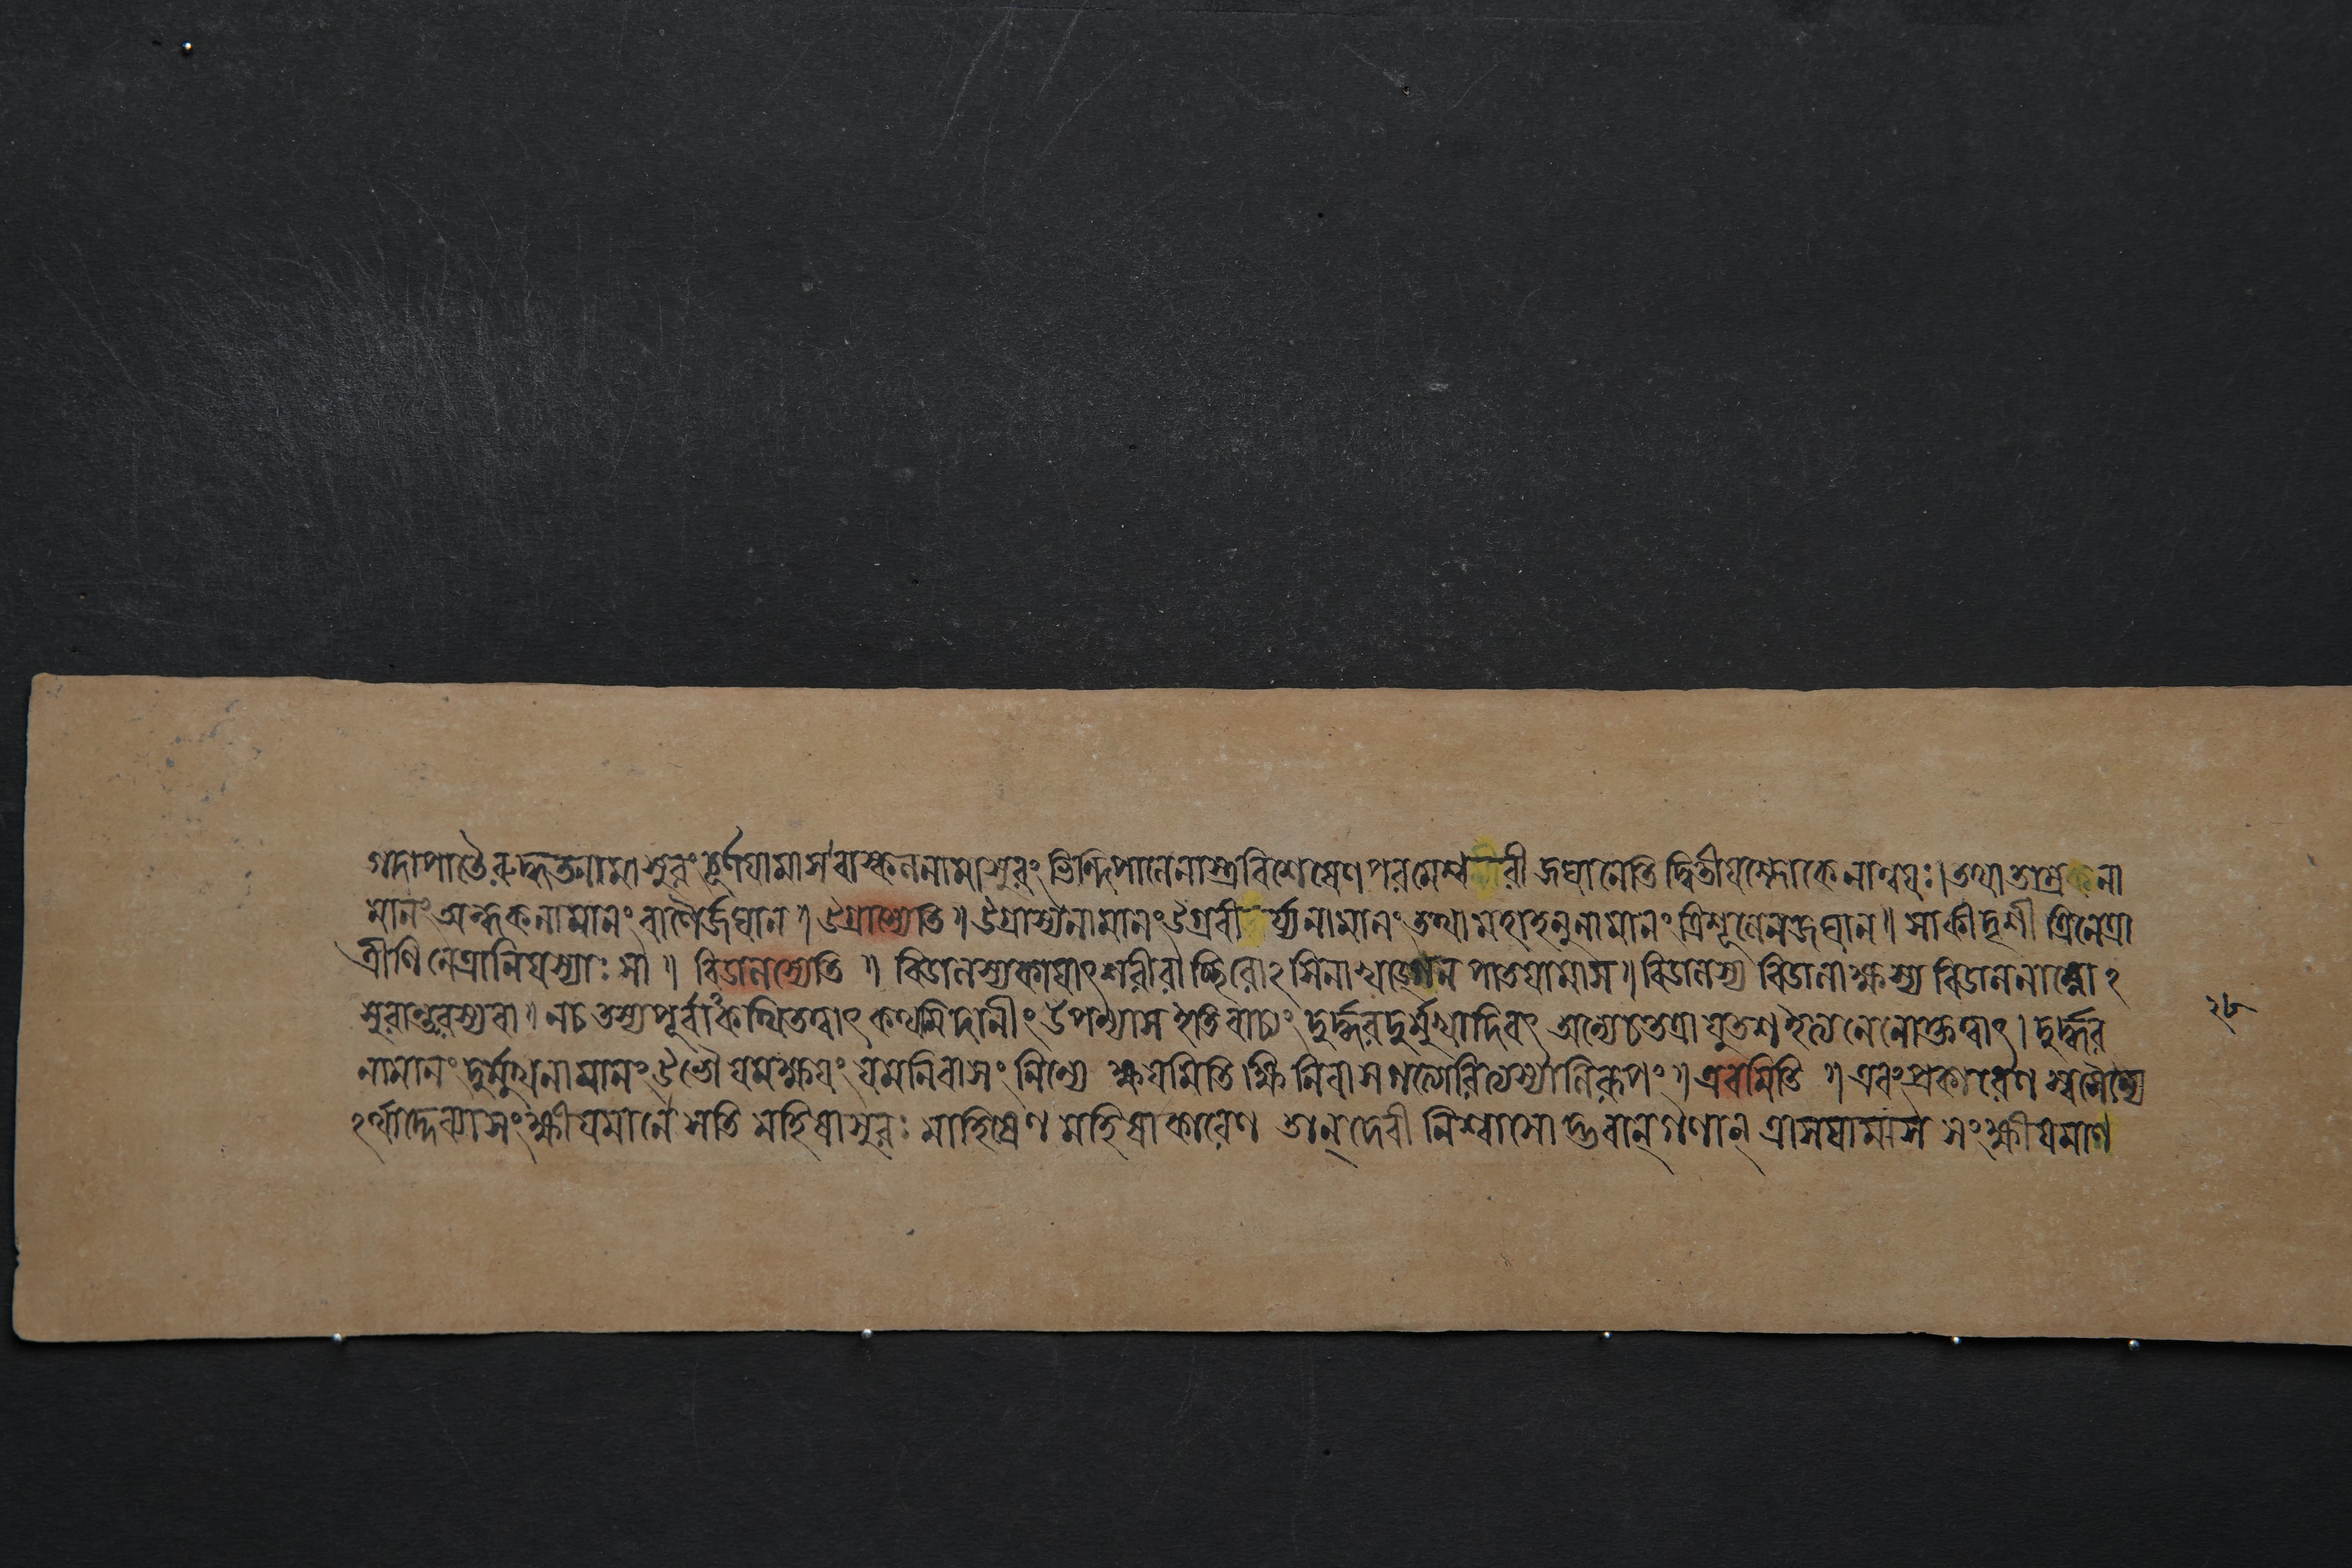 গদাপাতৈরুদ্ধতনামাসুরং চূর্ণযামাস বাস্কলনামাসুরং ভিন্দিপালেনাস্ত্রবিশেষেণ পরমেশ্বরী জঘানেতি দ্বিতীযশ্লোকেনান্বযঃ। তথা তাম্রকনা
মানং অন্ধকনামানং বাণৈর্জঘান॥ উগ্রাস্যেতি॥ উগ্রাস্যনামানং উগ্রবীর্য্যনামানং তথা মহাহনুনামানং ত্রিশূলেন জঘান॥ সা কীদৃশী ত্রিনেত্রা
ত্রীণি নেত্রানি যস্যাঃ সা॥ বিডালস্যেতি॥ বিডালস্য কাযাৎ শরীরাচ্ছিরোঽসিনা খড্গেন পাতযামাস॥ বিডালস্য বিডালাক্ষস্য বিডালনাম্নোঽ
সুরান্তরস্য বা॥ ন চ তস্য পূর্বাকথিতত্বাৎ কথমিদানীং উপন্যাস ইতি বাচ্যং দুর্দ্ধরদুর্মুখাদিবৎ অন্যে চ তত্রাযুতশ ইত্যনেনোক্তত্বাৎ। দুর্দ্ধর
নামানং দুর্মুখনামানং উভৌ যমক্ষযং যমনিবাসং নিন্যে ক্ষযমিতি ক্ষি নিবাসগত্যোরিত্যস্য নিরূপং॥ এবমিতি॥ এবং প্রকারেণ স্বসৈন্যে
ঽর্থাদ্দেব্যা সংক্ষীযমানে সতি মহিষাসুরঃ মাহিষেণ মহিষাকারেণ তান্ দেবী নিশ্বাসোদ্ভবান্ গণান্ ত্রাসযামাস সংক্ষীযমাণ
২৮